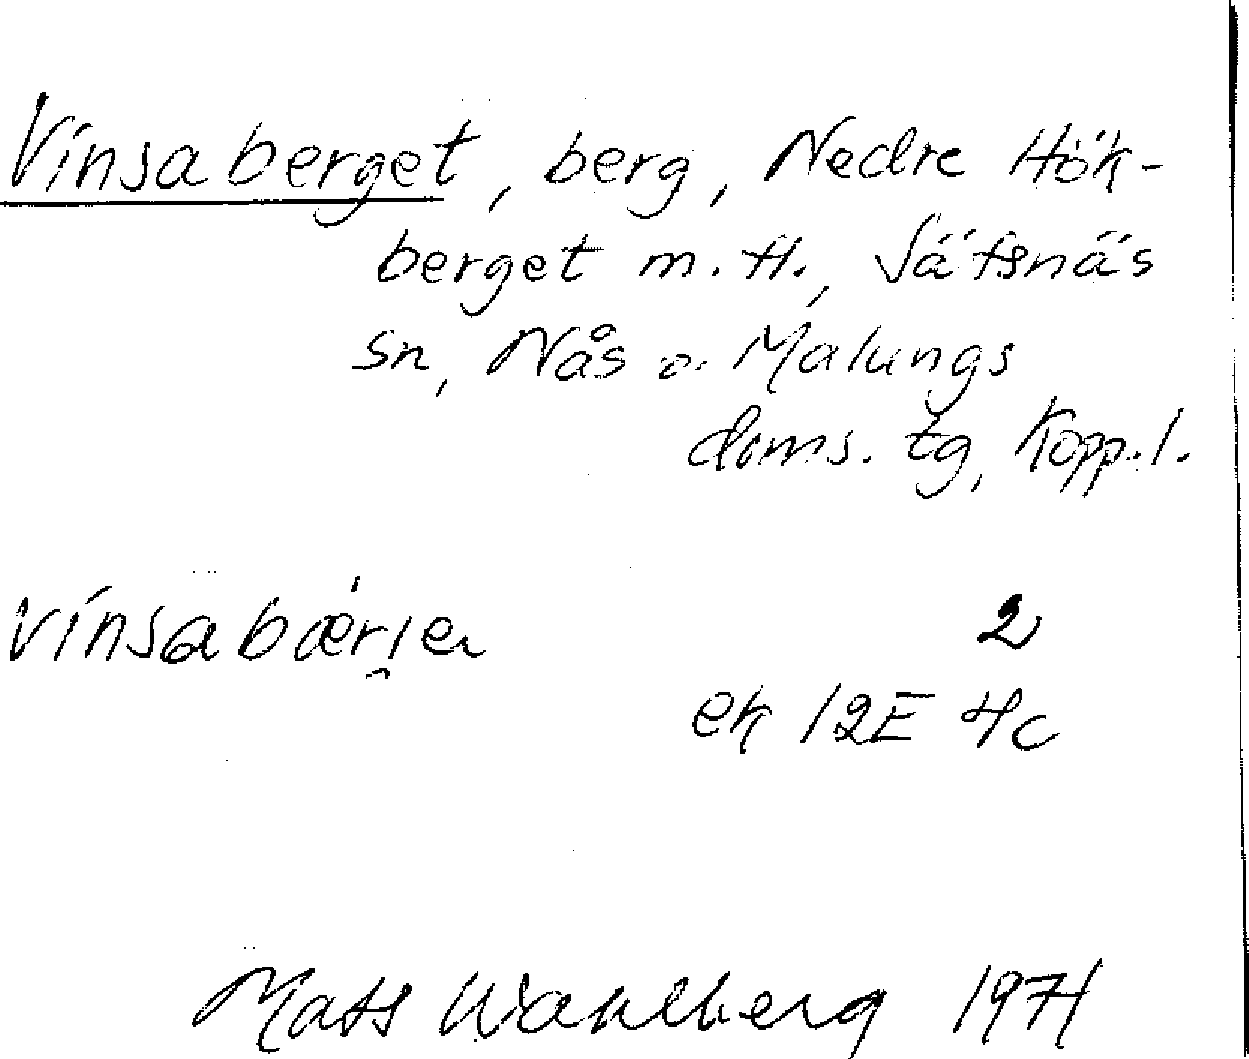 Vinsaberget, berg, Nedre Hök-
berget m.fl., Säfsnäs
sn, Nås o. Malungs
doms. tg, Kopp. l.
vinsabær̯ıeɴ
2
ek 12E 4c
Mats Wahlberg 1971